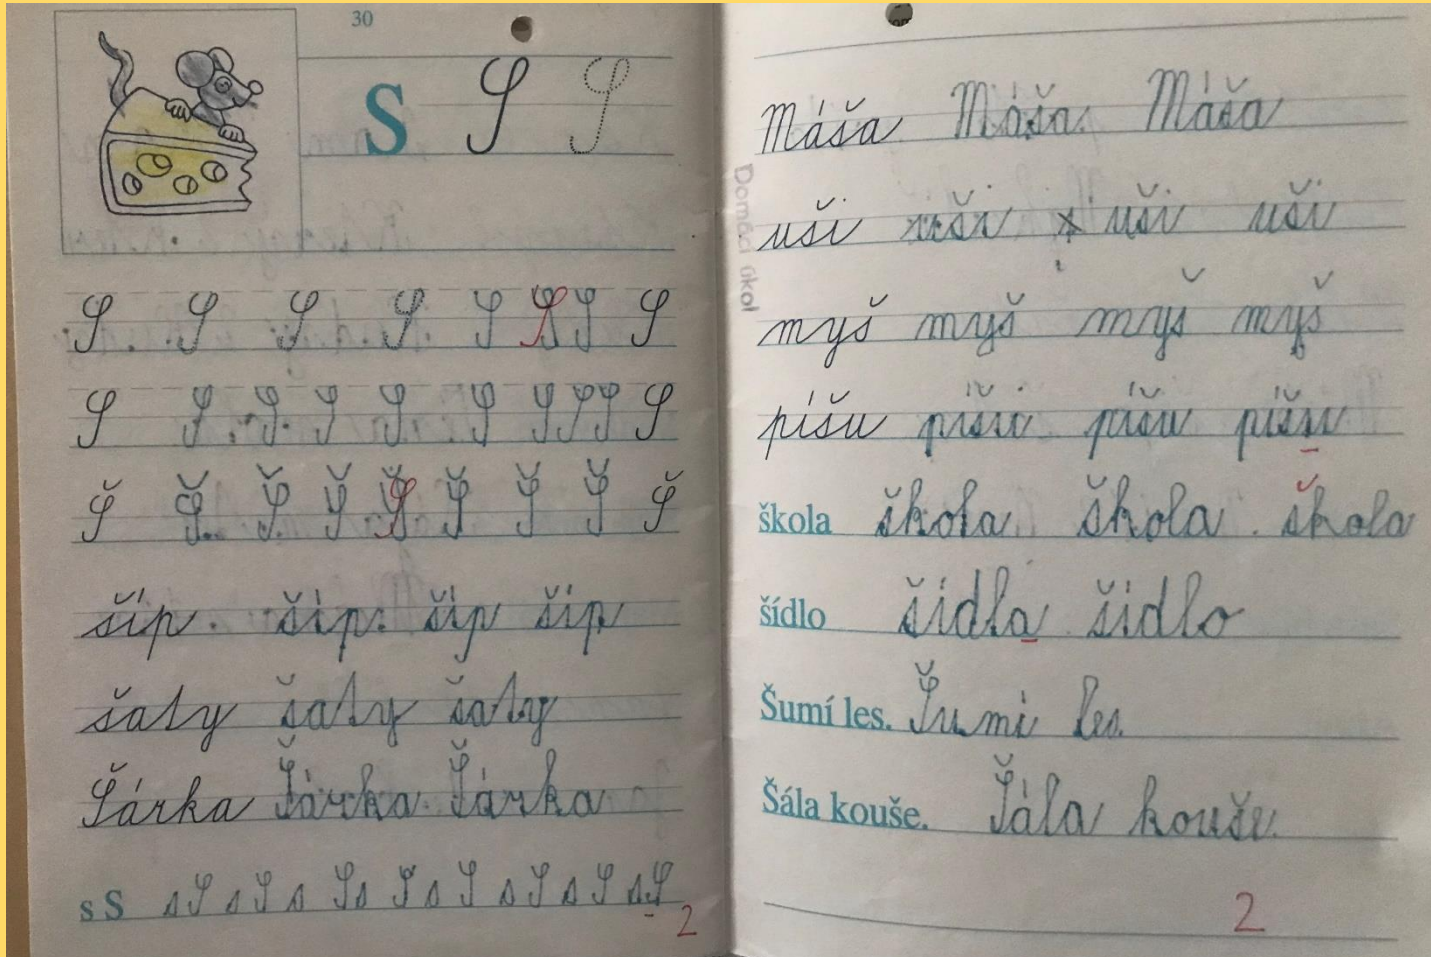 30
S S S
S S S S S S S S
S S S S S S S S S S
Š Š Š Š Š Š Š Š Š
šíp šíp šíp šíp
šaty šaty šaty
Šárka Šárka Šárka
s S s S s S s S s S s S s S s S s S s S
2
Domácí úkol
Máša Máša Máša
uši uši uši uši
myš myš myš myš
píšu píšu píšu píšu
škola škola škola škola
šídlo šídla šídlo
Šumí les. Šumí les.
Šála kouše. Šála kouše.
2